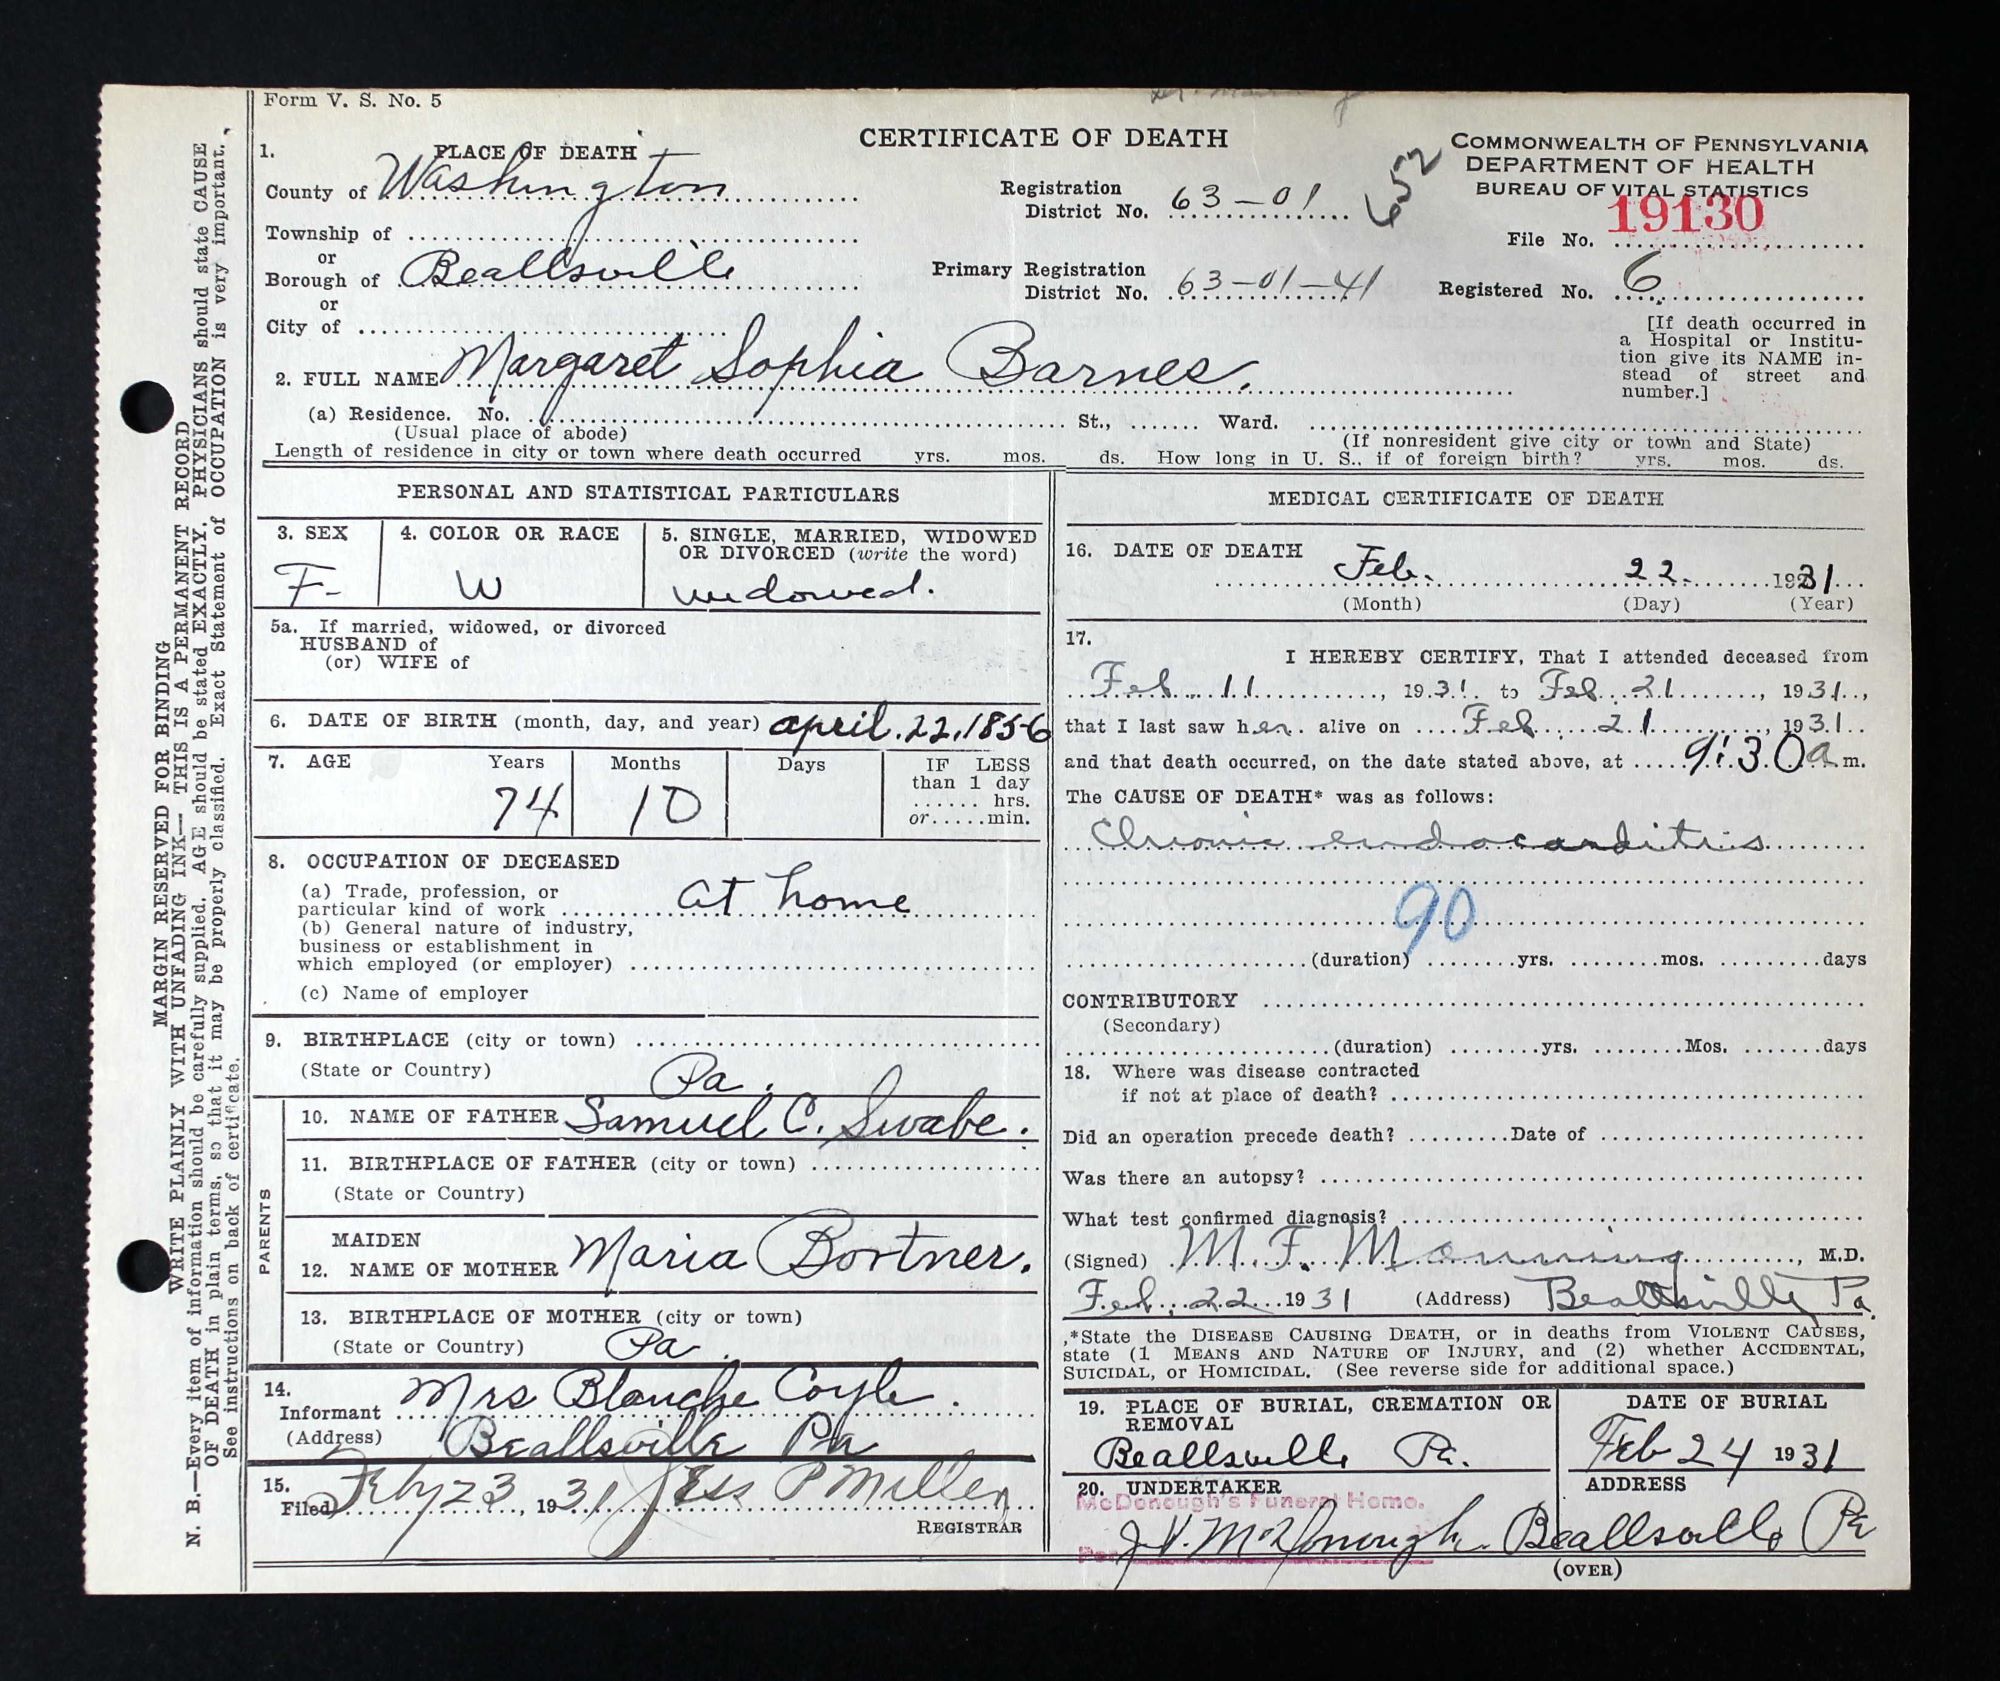 Form V. S. No. 5
CERTIFICATE OF DEATH
COMMONWEALTH OF PENNSYLVANIA
DEPARTMENT OF HEALTH
BUREAU OF VITAL STATISTICS
652
1. PLACE OF DEATH
County of Washington
Township of
or
Borough of Beallsville
or
City of
Registration
District No. 63-01
Primary Registration
District No. 63-01-41
19130
File No.
Registered No. 6
[If death occurred in
a Hospital or Institu-
tion give its NAME in-
stead of street and
number.]
2. FULL NAME Margaret Sophia Barnes.
(a) Residence. No. St., Ward.
(Usual place of abode) (If nonresident give city or town and State)
Length of residence in city or town where death occurred yrs. mos. ds. How long in U. S., if of foreign birth? yrs. mos. ds.
PERSONAL AND STATISTICAL PARTICULARS
3. SEX
F-
4. COLOR OR RACE
W
5. SINGLE, MARRIED, WIDOWED
OR DIVORCED (write the word)
widowed.
5a. If married, widowed, or divorced
HUSBAND of
(or) WIFE of
6. DATE OF BIRTH (month, day, and year) april. 22, 1856
7. AGE Years Months Days IF LESS
than 1 day
hrs.
or min.
74 10
8. OCCUPATION OF DECEASED
(a) Trade, profession, or
particular kind of work at home
(b) General nature of industry,
business or establishment in
which employed (or employer)
(c) Name of employer
9. BIRTHPLACE (city or town)
(State or Country) Pa.
PARENTS
10. NAME OF FATHER Samuel C. Swabe.
11. BIRTHPLACE OF FATHER (city or town)
(State or Country)
MAIDEN
12. NAME OF MOTHER Maria Bortner.
13. BIRTHPLACE OF MOTHER (city or town)
(State or Country) Pa.
14. Informant Mrs Blanche Coyle.
(Address) Beallsville Pa
15. Filed Feby 23, 1931 Jess P Miller
REGISTRAR
MEDICAL CERTIFICATE OF DEATH
16. DATE OF DEATH Feb. 22. 1931
(Month) (Day) (Year)
17. I HEREBY CERTIFY, That I attended deceased from
Feb 11, 1931 to Feb 21, 1931,
that I last saw her alive on Feb 21, 1931
and that death occurred, on the date stated above, at 9:30 a m.
The CAUSE OF DEATH* was as follows:
Chronic endocarditis
90
(duration) yrs. mos. days
CONTRIBUTORY
(Secondary)
(duration) yrs. Mos. days
18. Where was disease contracted
if not at place of death?
Did an operation precede death? Date of
Was there an autopsy?
What test confirmed diagnosis?
(Signed) M. F. Manning, M.D.
Feb. 22 1931 (Address) Beallsville Pa.
*State the DISEASE CAUSING DEATH, or in deaths from VIOLENT CAUSES,
state (1 MEANS AND NATURE OF INJURY, and (2) whether ACCIDENTAL,
SUICIDAL, or HOMICIDAL. (See reverse side for additional space.)
19. PLACE OF BURIAL, CREMATION OR
REMOVAL
Beallsville Pa.
DATE OF BURIAL
Feb 24 1931
20. UNDERTAKER
McDonough's Funeral Home.
Per J. V. McDonough.
ADDRESS
Beallsville Pa
(OVER)
MARGIN RESERVED FOR BINDING
WRITE PLAINLY WITH UNFADING INK—THIS IS A PERMANENT RECORD
N. B.—Every item of information should be carefully supplied. AGE should be stated EXACTLY. PHYSICIANS should state CAUSE
OF DEATH in plain terms, so that it may be properly classified. Exact Statement of OCCUPATION is very important.
See instructions on back of certificate.